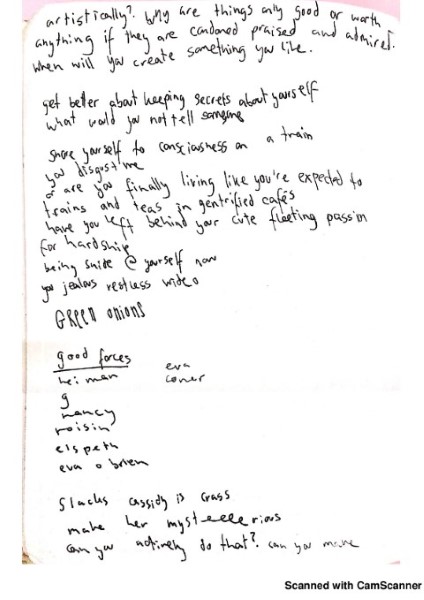 artistically? why are things only good or worth
anything if they are condoned praised and admired.
when will you create something you like.
get better about keeping secrets about yourself
what would you not tell someone
snore yourself to consciousness on a train
you disgust me
or are you finally living like you're expected to
trains and teas in gentrified cafés
have you left behind your cute fleeting passion
for hardship
being snide @ yourself now
you jealous restless wideo
GREEN ONIONS
good forces
heiman eva
g coner
nancy
roisin
elspeth
eva o brien
Slacks cassidy is crass
make her mysteeeerious
can you actively do that? can you make
Scanned with CamScanner